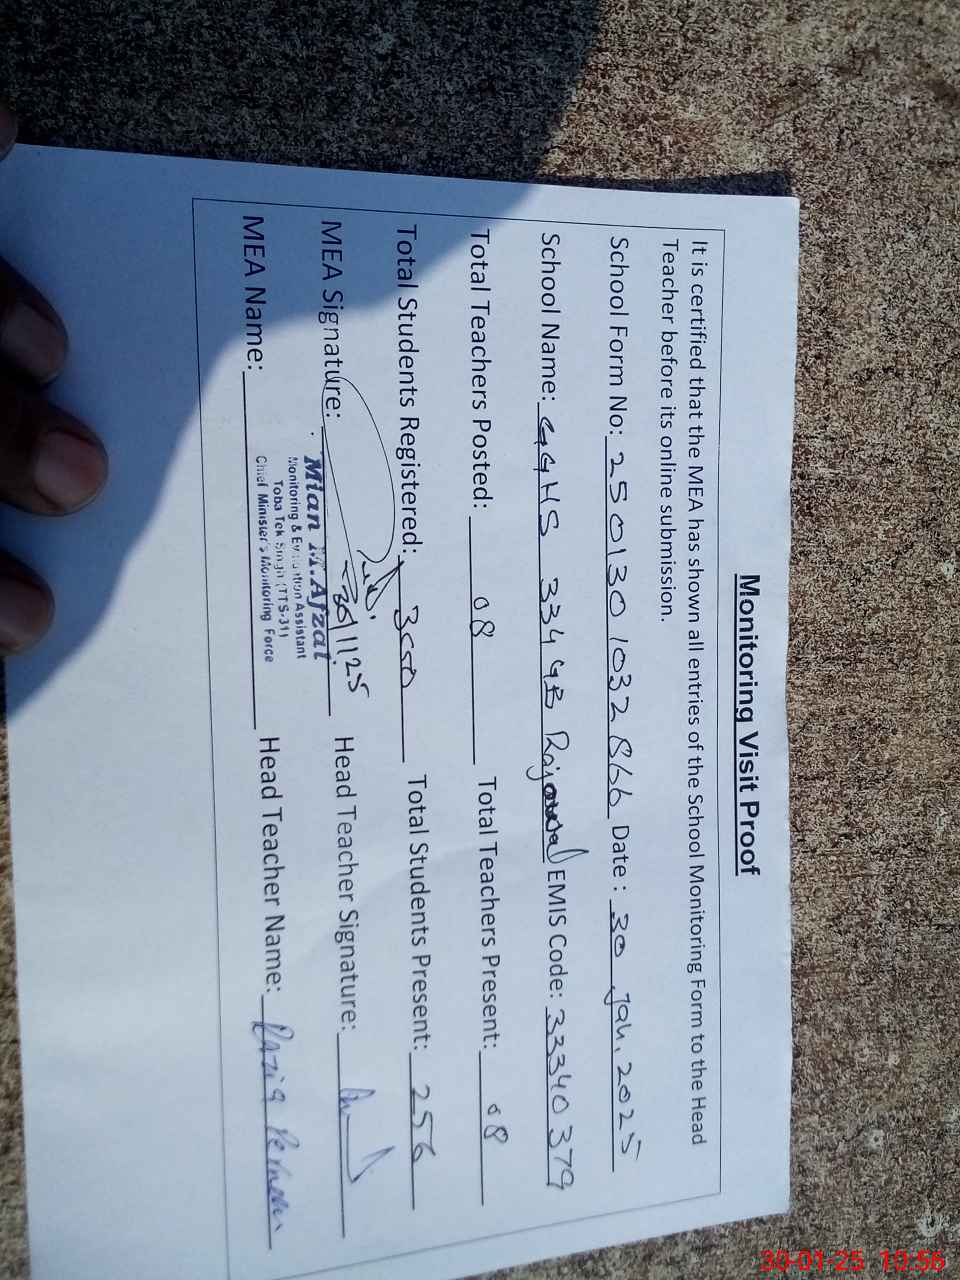 Monitoring Visit Proof
It is certified that the MEA has shown all entries of the School Monitoring Form to the Head
Teacher before its online submission.
School Form No: 2501301032866 Date : 30 Jan, 2025
School Name: GGHS 334 GB EMIS Code: 33340379
Total Teachers Posted: 08 Total Teachers Present: 08
Total Students Registered: Total Students Present: 256
MEA Signature: 30/1/25 Head Teacher Signature:
Mian M.Afzal
Monitoring & Evaluation Assistant
Toba Tek Singh (TTS-31)
Chief Minister's Monitoring Force
MEA Name: Head Teacher Name: Razia
30-01-25 10:56